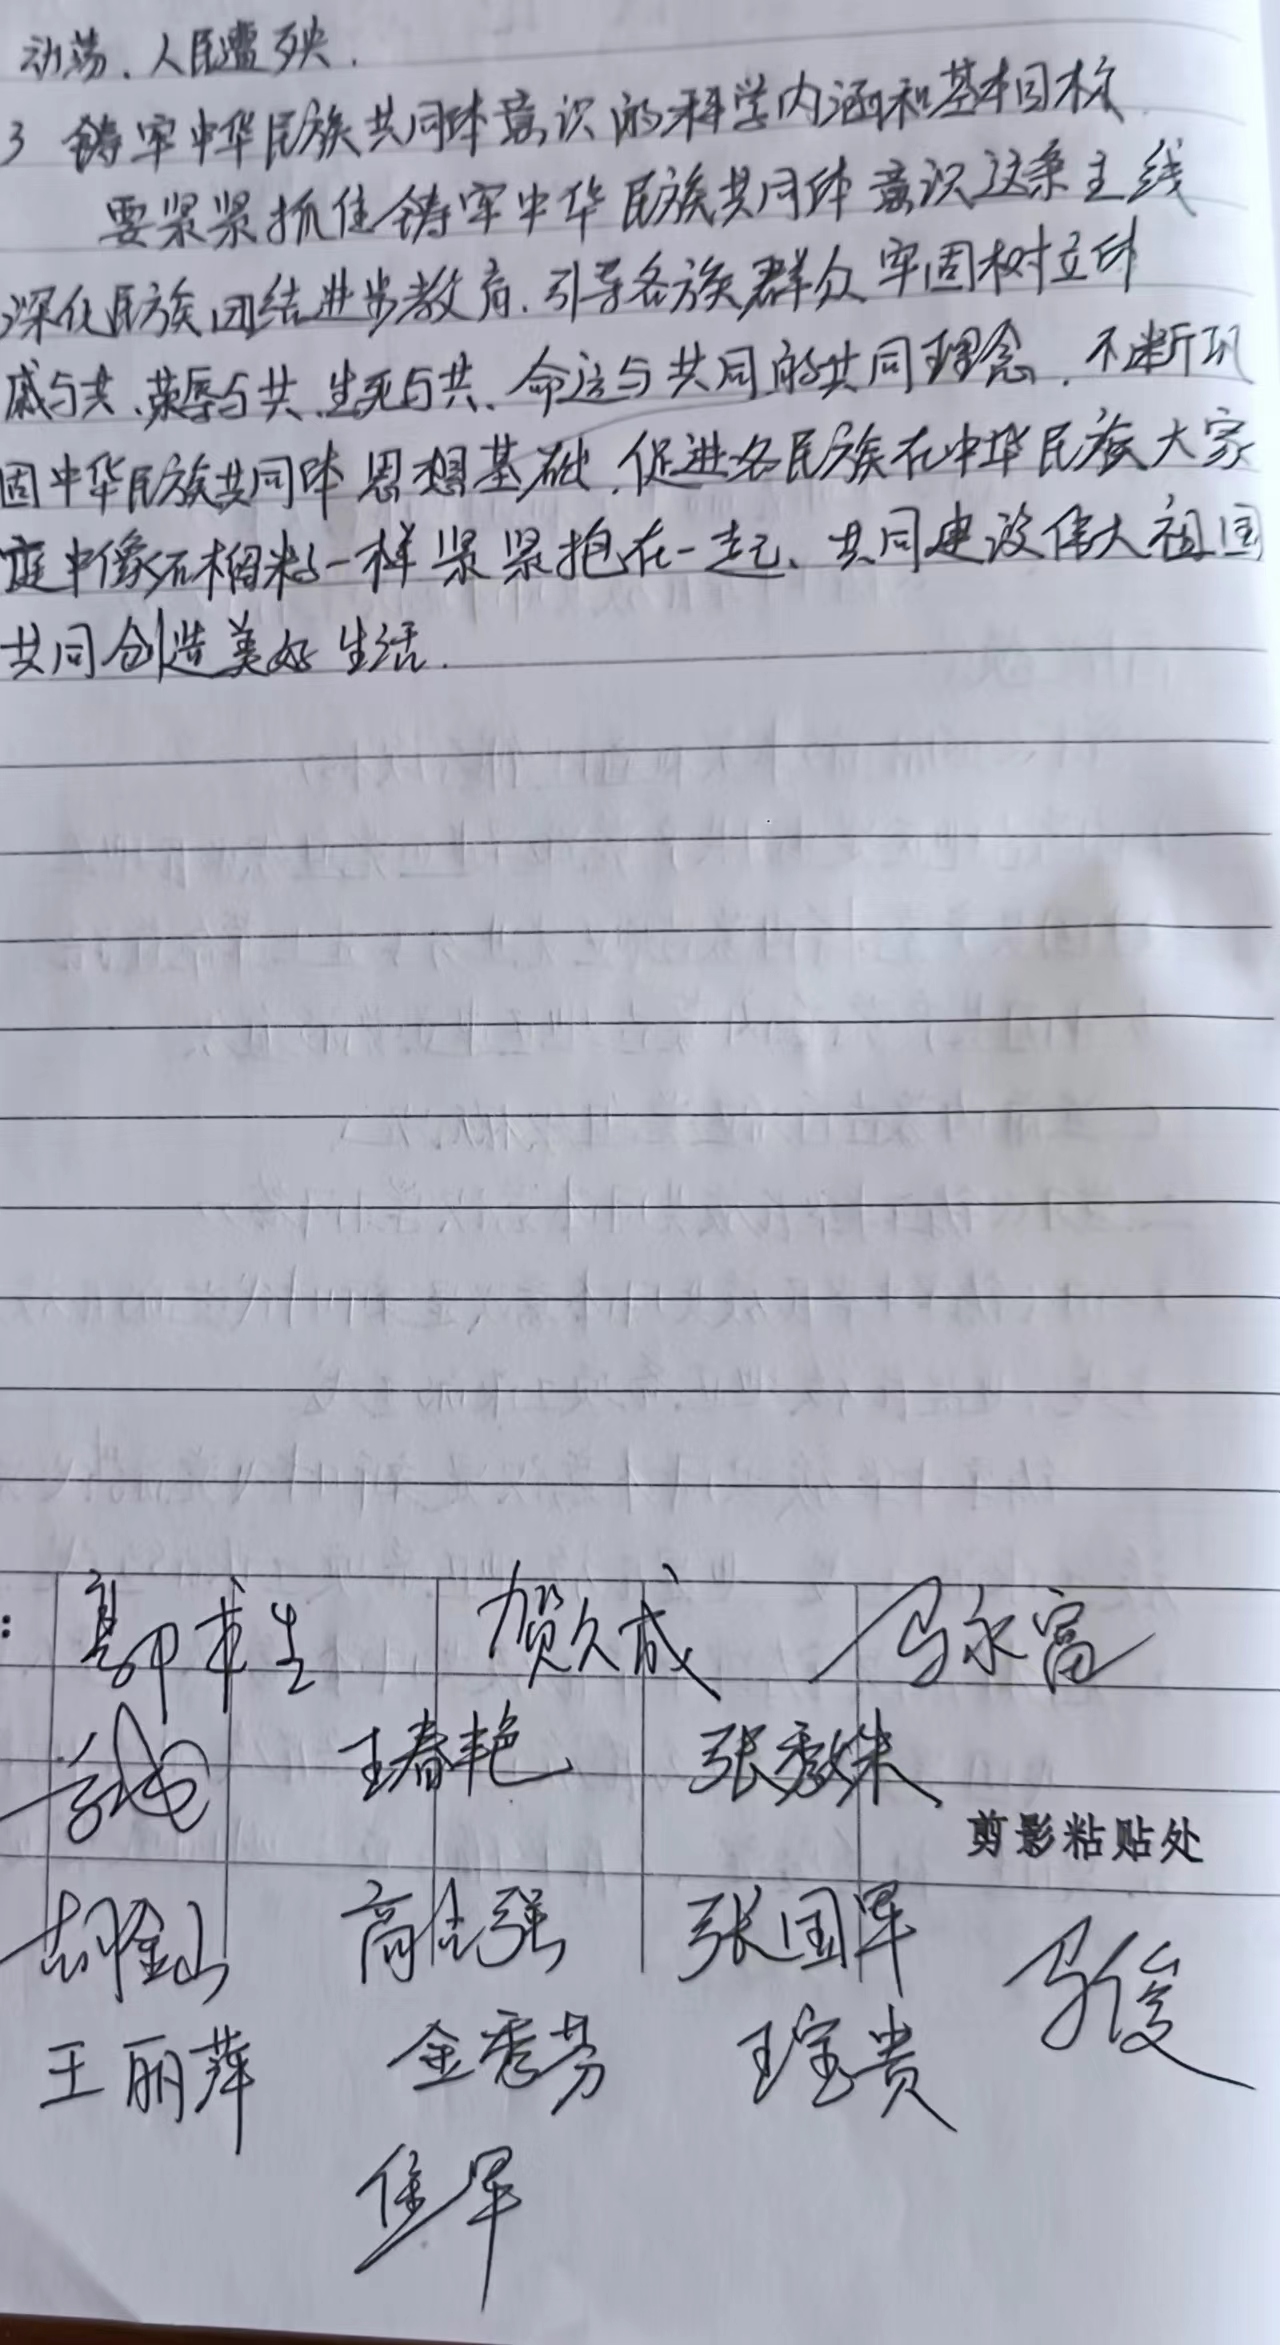 动荡、人民遭殃.
3 铸牢中华民族共同体意识的科学内涵和基本目标.
要紧紧抓住铸牢中华民族共同体意识这条主线
深化民族团结进步教育、引导各族群众牢固树立休
戚与共、荣辱与共、生死与共、命运与共同的共同理念、不断巩
固中华民族共同体思想基础、促进各民族在中华民族大家
庭中像石榴籽一样紧紧抱在一起、共同建设伟大祖国
共同创造美好生活.
: 郭求生 贺久成 马永富
王春艳 张秀姝
剪影粘贴处
胡金山 高志强 张国军 马俊
王丽萍 金秀芬 王宝贵
焦军